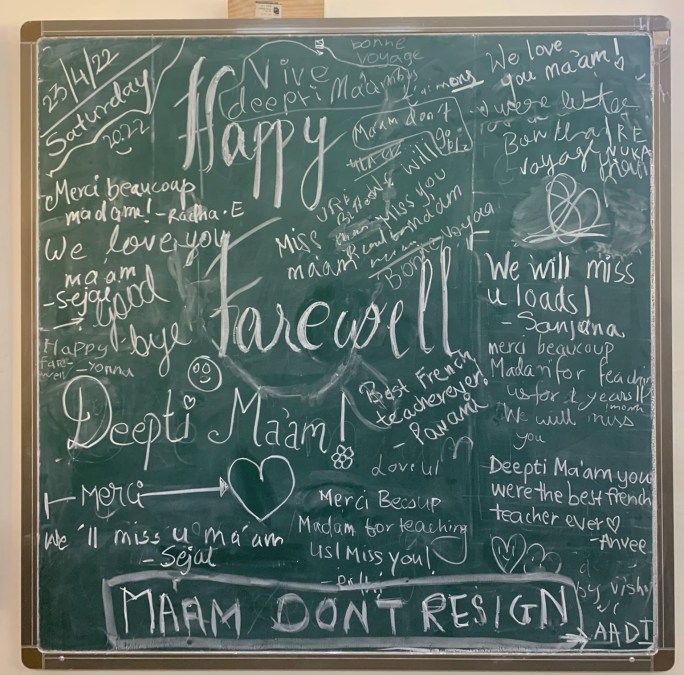 23/4/22
Saturday
2022
bonne
voyage
Vive
deepti Ma'am
Happy
Ma'am don't
go
We love
you ma'am!
Bon
voyage
Merci beaucoup
madame! - Radha.E
We love you
ma'am
-Sejal
Good
bye
Happy
Fare-
well - Yonna
will
Miss you
Miss
ma'am
Bon voyaa
Farewell
We will miss
u loads!
- Sanjana
merci beaucoup
Madam for teaching
us for 1 year 11
month
We will miss
you
Deepti Ma'am!
Best French
teacher ever!
- Pavani
Love u!
Merci
We'll miss u ma'am
- Sejal
Merci Becoup
Madam for teaching
us! Miss you!
Deepti Ma'am you
were the best french
teacher ever
- Anvee
by
MAAM DONT RESIGN
AADI